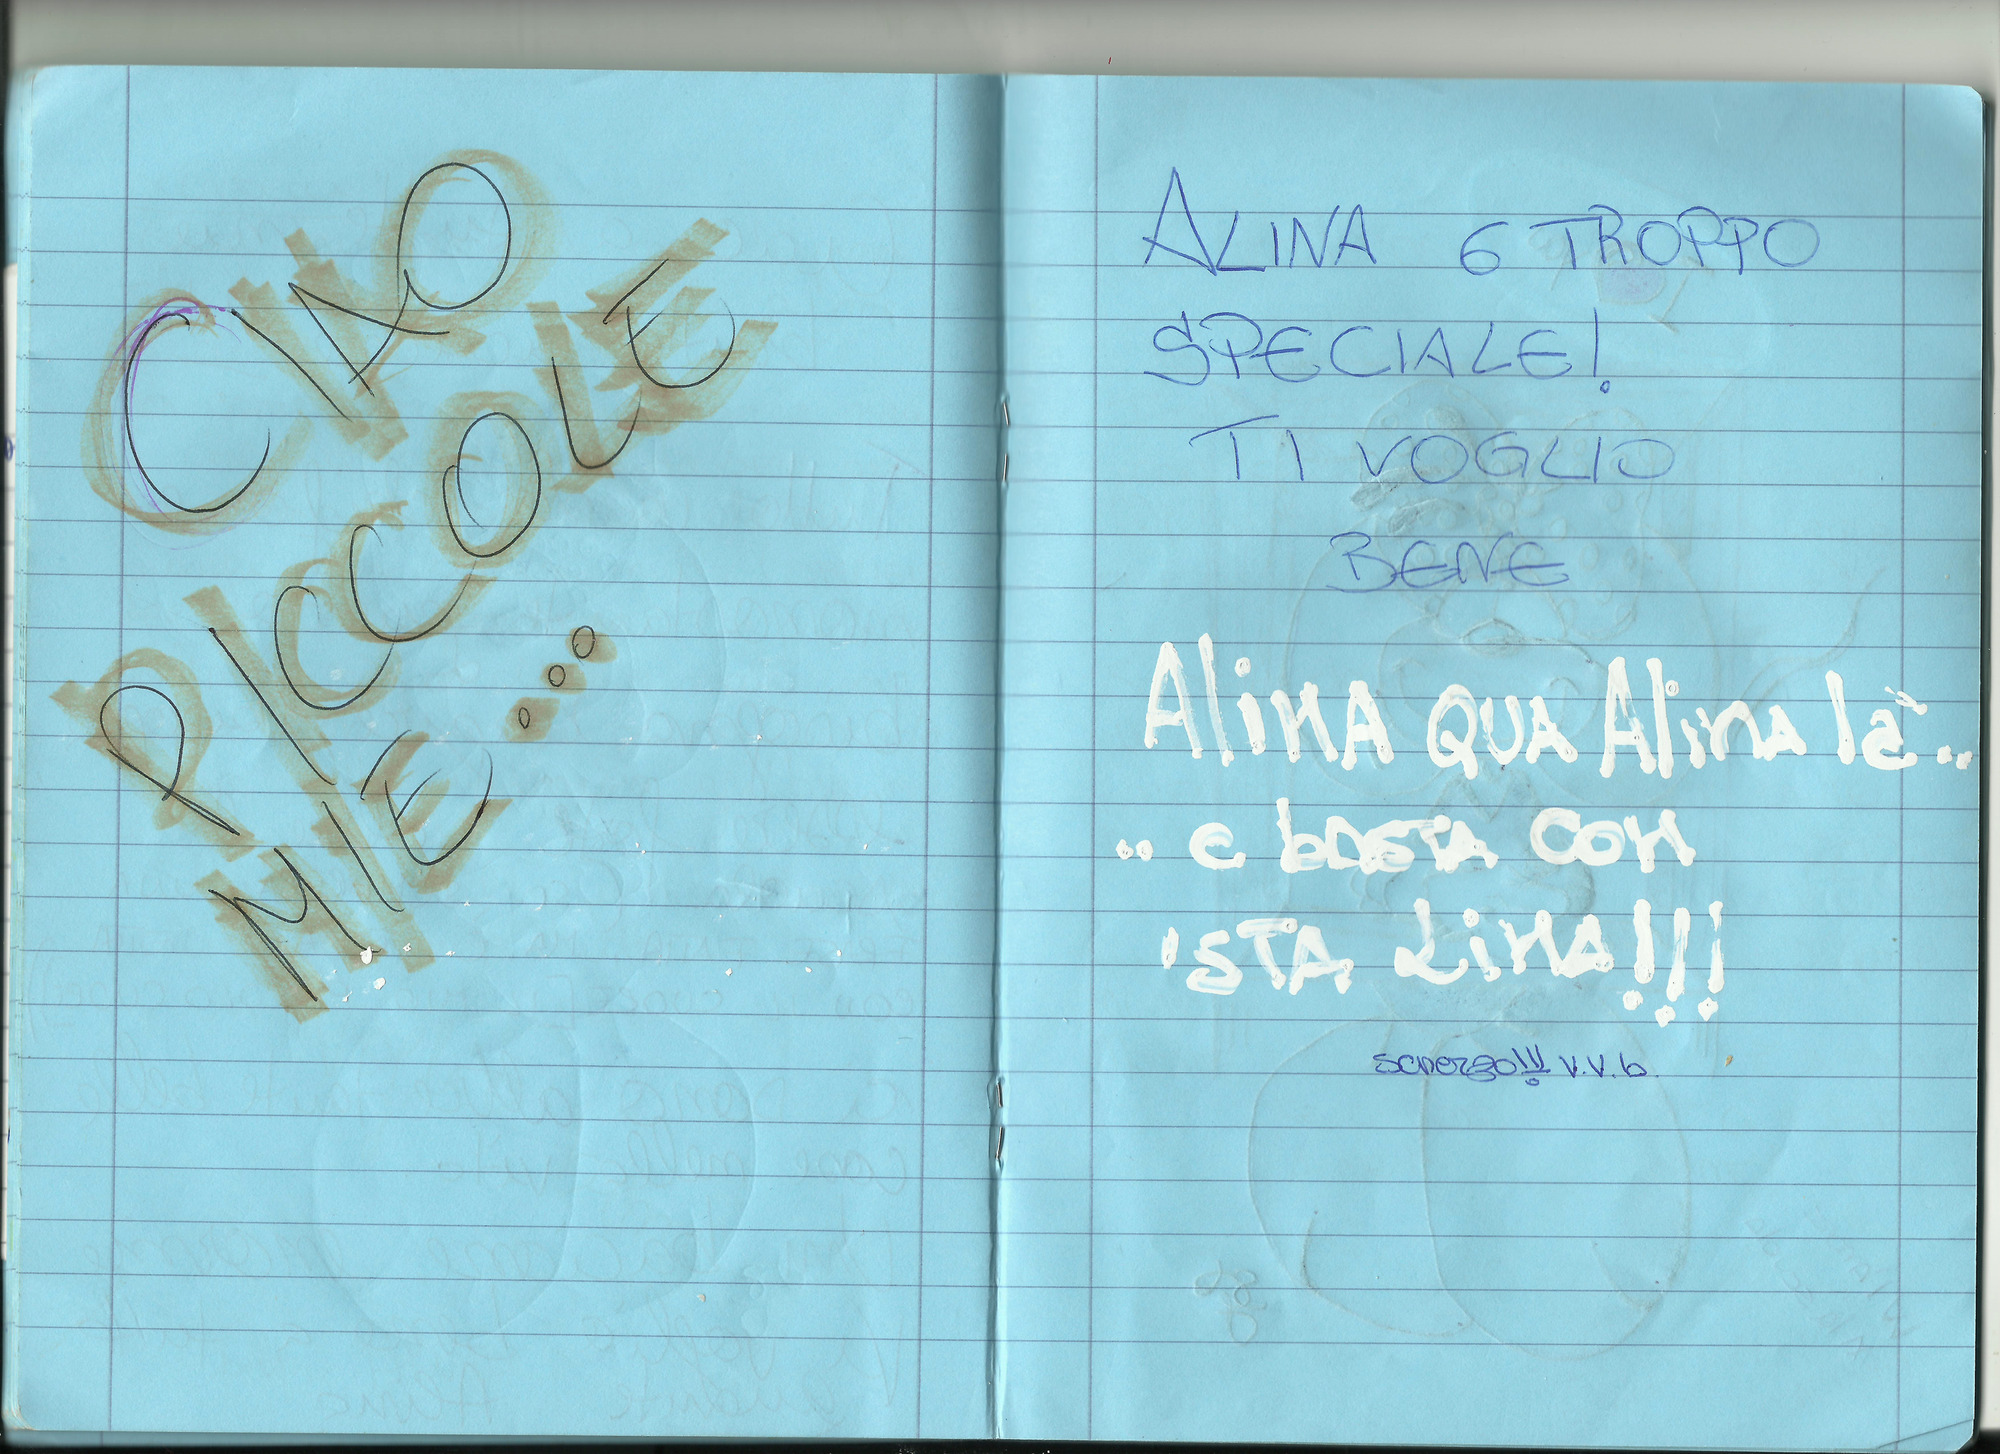 CIAO
PICCOLE
MIE...
ALINA 6 TROPPO
SPECIALE!
TI VOGLIO
BENE
AliNA QUA Alina là..
.. e bASTA CON
'STA LiNA!!!
scherzo!!! V.V.b.